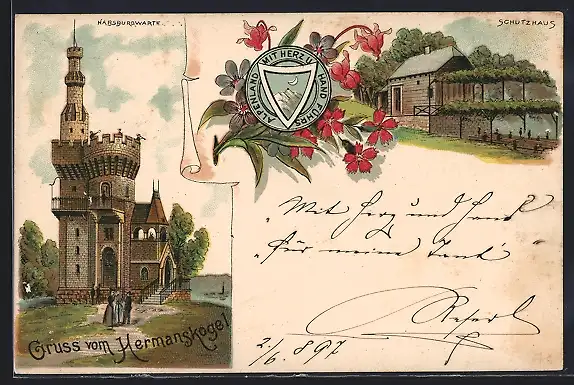 HABSBURGWARTE
SCHUTZHAUS
MIT HERZ U. HAND FÜHRS ALPENLAND
"Mit Herz und Hand
"Für meine Tant"
2/6. 897
Gruss vom Hermanskogel